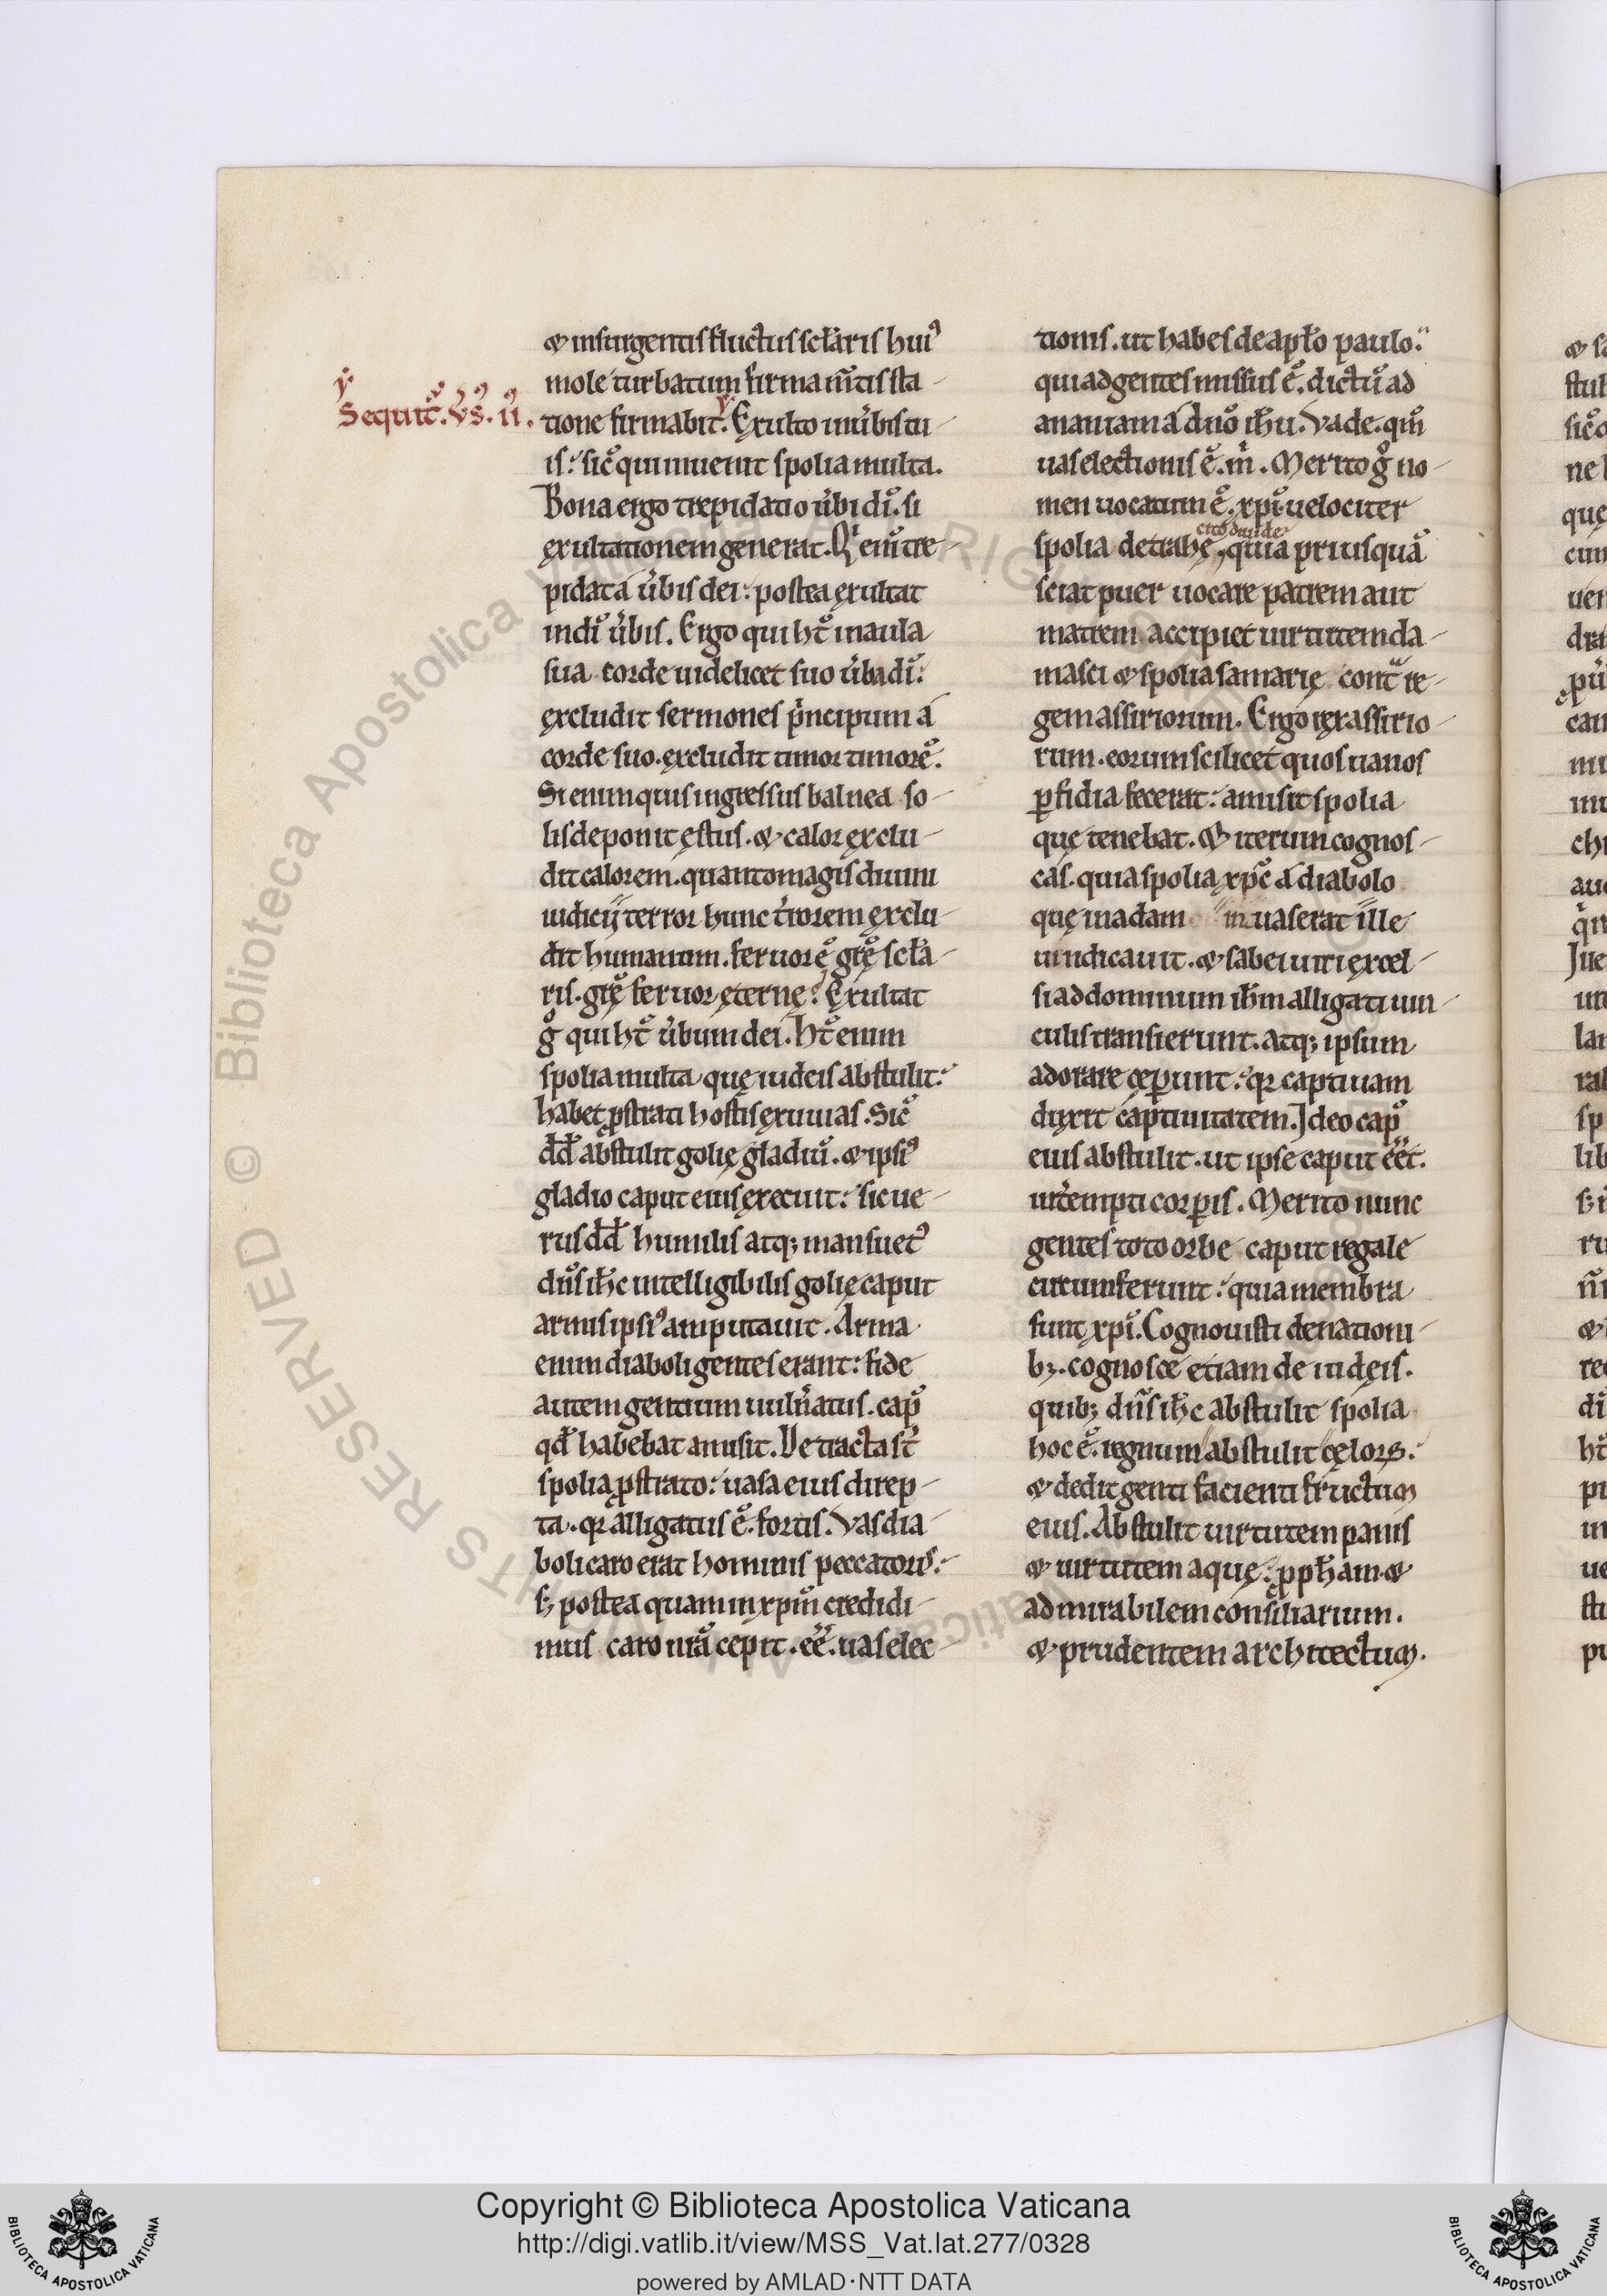 & insurgentis fluctus sclaris hui᾽
mole turbatum firmam̅tis sta-
Sequit᷒. v᷒s. ii᷒.
tione firmabit. Exulto in u᷒bis tu-
is. sic̊ qui inuenit spolia multa.
Bona ergo trepidatio u᷒bi di̅. si
ęxultationem generat. Pͥ eni̅ tre-
pidat a u᷒bis dei. postea ęxultat
in di̅ u᷒bis. Ergo qui ht̅ in aula
sua corde uidelicet suo u᷒ba di̅.
ęxcludit sermones pͥncipum a
corde suo. ęxcludit timor timore̅.
Si enim quis ingressus balnea so-
lis deponit ęstus. & calor ęxclu-
dit calorem. quanto magis diuini
iudicij terror hunc t᷒rorem ęxclu-
dit humanum. feruore̅ gr̅ę scła-
ris. gr̅ę feruor ęternę. Exultat
g̊ qui ht̅ u᷒bum dei. Ht̅ enim
spolia multa quę iudeis abstulit.
habet pstrati hostis ęxuuias. Sic̊
dd̅ abstulit golię gladiu̅. & ipsi᾽
gladio caput eius ęxecuit. sic ue-
rus dd̅ humilis atq; mansuet᾽
dn̅s ih̅c intelligibilis golię caput
armis ipsi᾽ amputauit. Arma
enim diaboli gentes erant. fide
autem gentium uuln᷒atus. cap̊
qd̅ habebat amisit. Detracta st̅
spolia pstrato. uasa eius direp-
ta. qr alligatus e̅. fortis. Vas dia-
boli caro erat hominis peccatoris.
s; postea quam in xpm̅ credidi-
mus caro nr̅a cepit. ee̅. uas elec-
tionis. ut habes de apło paulo.
qui ad gentes missus e̅. dictu̅ ad
ananiam a dn̅o ih̅u. Vade. qm̅
uas electionis e̅. m᷒. Merito g̊ no-
men uocatum e̅. xpi̅. uelociter
cito diuide
spolia detrahe, quia priusqua̅
sciat puer uocare patrem aut
matrem accipiet uirtutem da-
masci & spolia samarię cont᷒ re-
gem assiriorum. Ergo ręx assirio-
rum. eorum scilicet quos uanos
pfidia fecerat. amisit spolia
quę tenebat. & iterum cognos-
cas. quia spolia xpc̅ a diabolo
quę in adam inuaserat ille
uindicauit. & sabei uiri ęxcel-
si ad dominum ih̅m alligati uin-
culis transierunt. atq; ipsum
adorare cęperunt. qr captiuam
duxit captiuitatem. Ideo cap̊
eius abstulit. ut ipse caput ee̅t.
ur᷒empti corpis. Merito nunc
gentes toto orbe caput regale
circumferunt. quia membra
sunt xpi̅. Cognouisti de nationi-
b;. cognosce etiam de iudęis.
quib; dn̅s ih̅c abstulit spolia
hoc e̅. regnum abstulit cęloꝝ.
& dedit genti facienti fructum
eius. Abstulit uirtutem panis
& uirtutem aquę. ppħam &
admirabilem consiliarium.
& prudentem architectum.
Copyright © Biblioteca Apostolica Vaticana
http://digi.vatlib.it/view/MSS_Vat.lat.277/0328
powered by AMLAD·NTT DATA